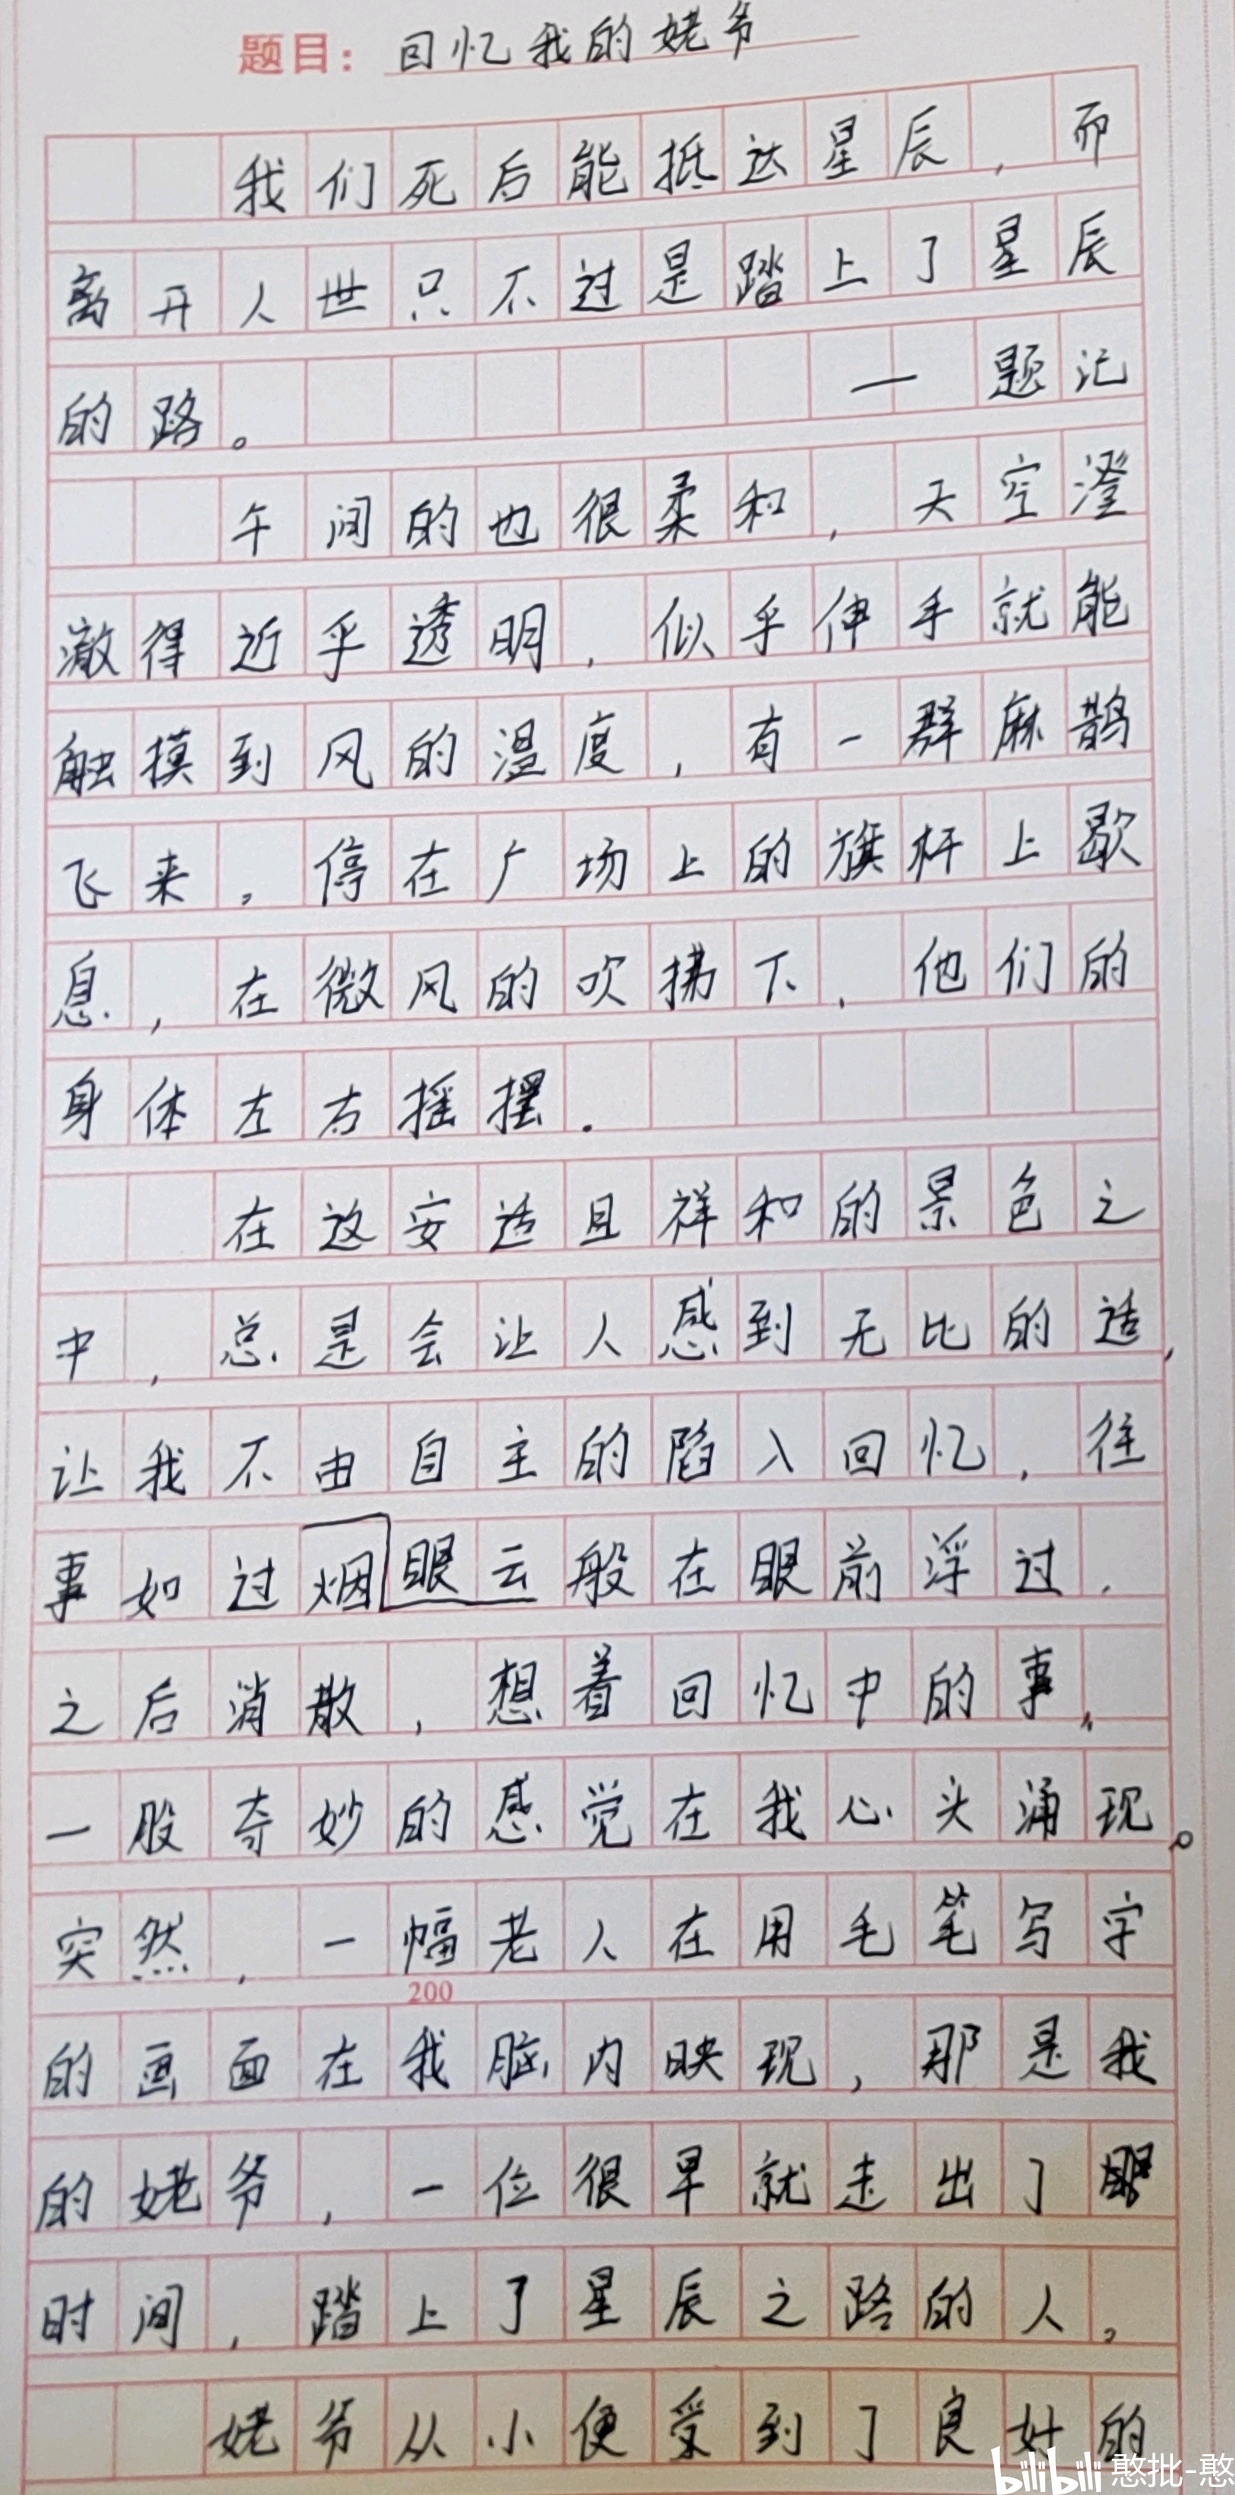 题目：回忆我的姥爷
我们死后能抵达星辰，而
离开人世只不过是踏上了星辰
的路。——题记
午间的也很柔和，天空澄
澈得近乎透明，似乎伸手就能
触摸到风的温度，有一群麻鹊
飞来，停在广场上的旗杆上歇
息，在微风的吹拂下，他们的
身体左右摇摆.
在这安适且祥和的景色之
中，总是会让人感到无比的适，
让我不由自主的陷入回忆，往
事如过烟眼云般在眼前浮过，
之后消散，想着回忆中的事，
一股奇妙的感觉在我心头涌现。
突然，一幅老人在用毛笔写字
200
的画面在我脑内映现，那是我
的姥爷，一位很早就走出了
时间，踏上了星辰之路的人。
姥爷从小便受到了良好的
bilibili 憨批-憨